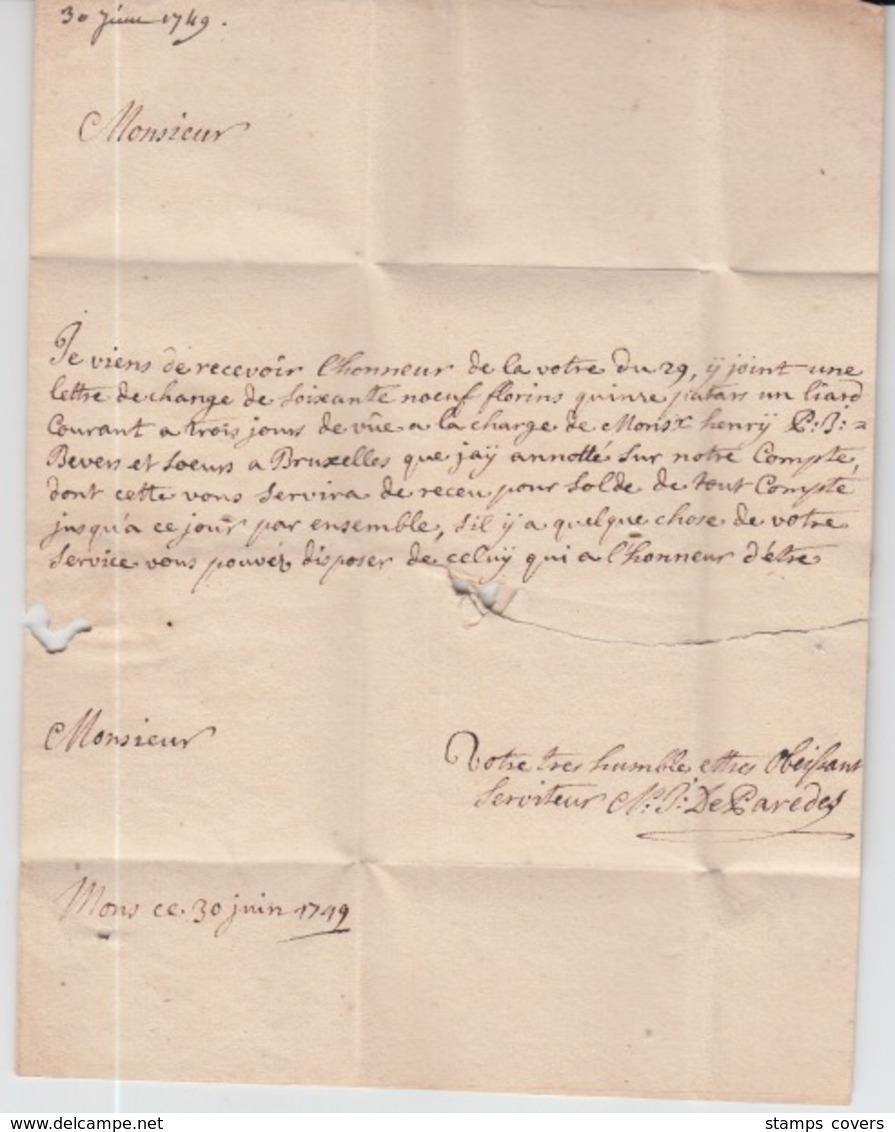 30 Juin 1749.
Monsieur
Je viens de recevoir l'honneur de la votre du 29, ÿ joint une
lettre de change de soixante noeuf florins quinze patars un liard
Courant a trois jours de vüe a la charge de Monsr henrÿ P: J: =
Bevers et soeurs a Bruxelles que jaÿ annotté sur notre Compte,
dont cette vous servira de receu pour solde de tout Compte
jusqu'a ce jour par ensemble, s'il ÿ a quelque chose de votre
service vous pouvéz disposer de celuÿ qui a l'honneur d'étre
Monsieur
Votre tres humble et tres Obeissant
Serviteur N: J: De Paredes
Mons ce 30 juin 1749
stamps covers